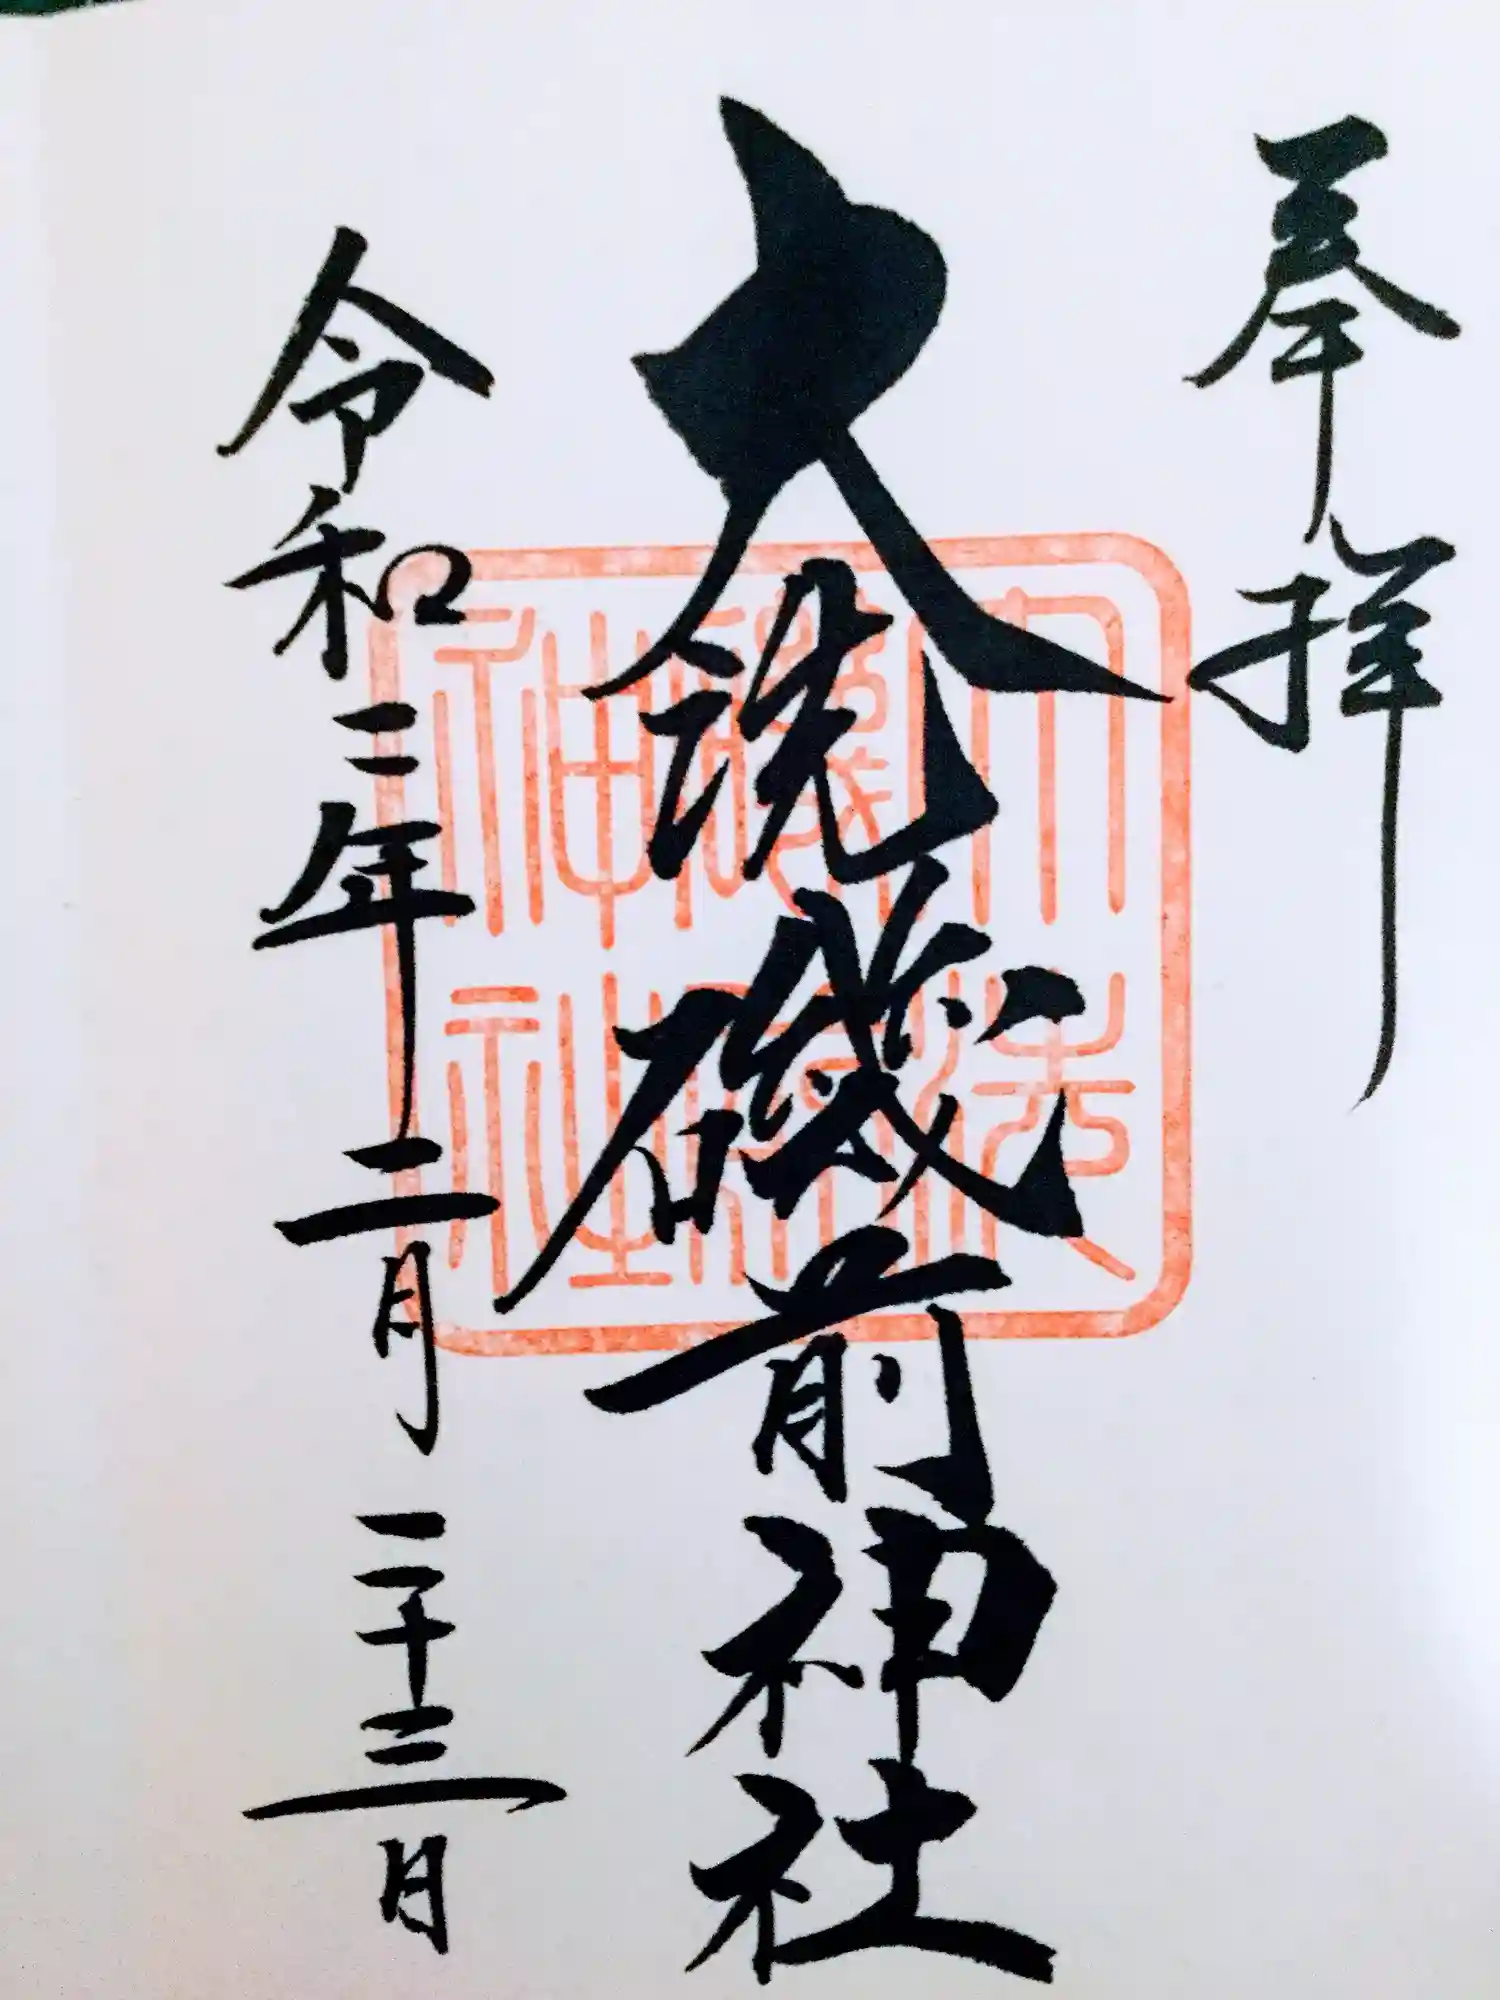 奉拝
大洗磯前神社
令和二年二月二十三日
大洗
磯前
神社